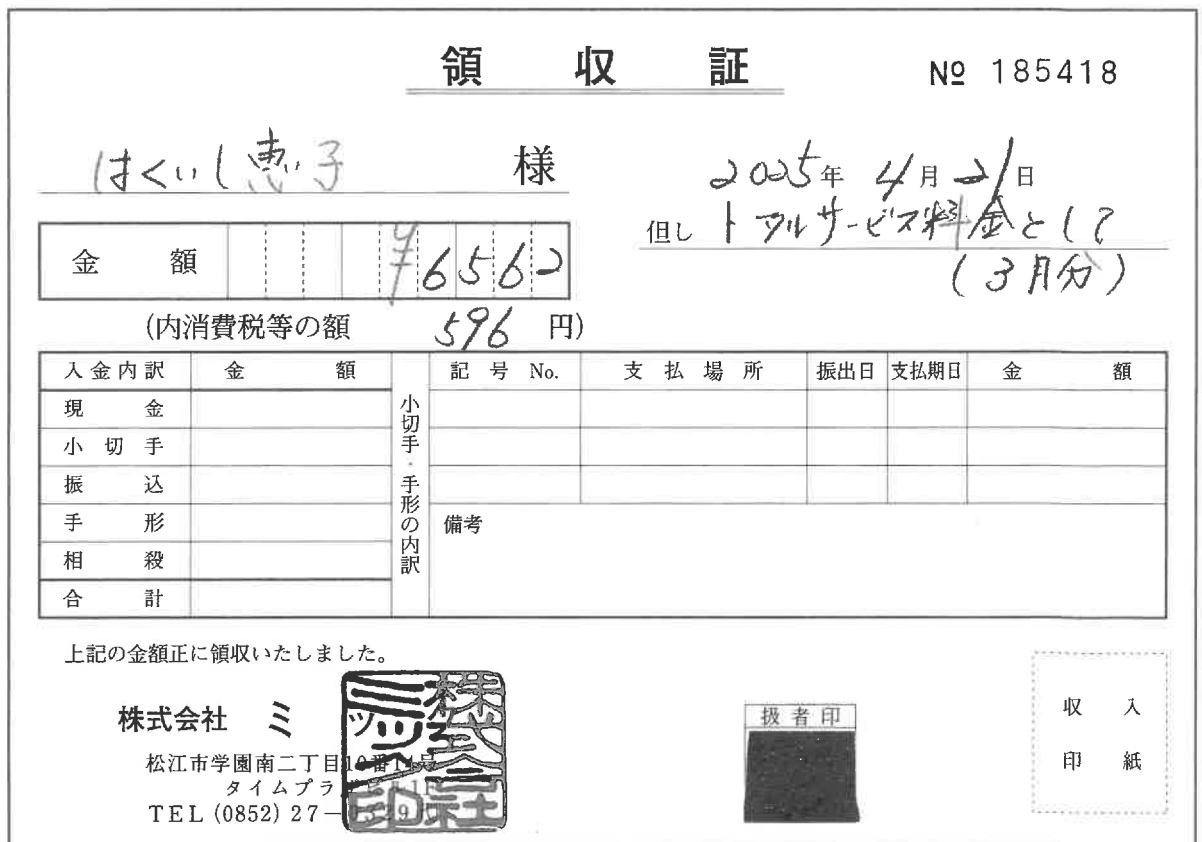 領収証
№ 185418
はくいし恵子 様
2025年 4月 21日
但し トータルサービス料金として
(3月分)
金額 ¥6562
(内消費税等の額 596 円)
入金内訳 金額
現金
小切手
振込
手形
相殺
合計
小切手・手形の内訳
記号No. 支払場所 振出日 支払期日 金額
備考
上記の金額正に領収いたしました。
株式会社 ミ
松江市学園南二丁目10番14号
タイムプラ
TEL (0852) 27-
扱者印
収入
印紙